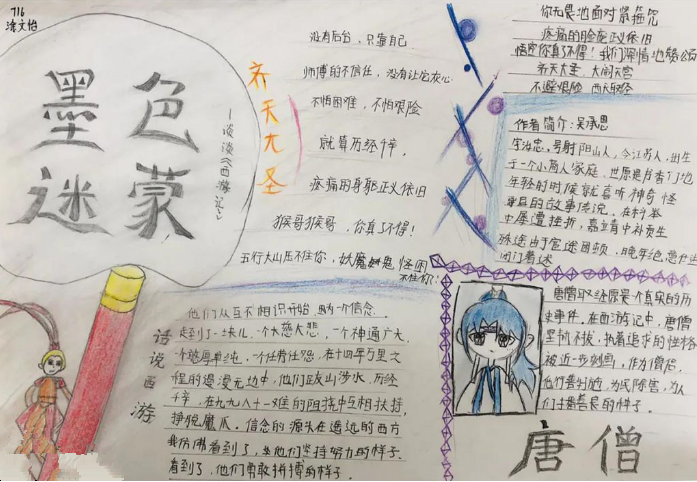 716
涂文怡
墨色
迷蒙
—谈谈《西游记》
齐天大圣
没有后台,只靠自己
师傅的不信任,没有让它灰心
不怕困难,不怕艰险
就算历经千辛,
疼痛的身躯正义依旧
猴哥猴哥,你真了不得!
五行大山压不住你,妖魔鬼怪闹
不住你!
你无畏地面对紧箍咒
疼痛的脸庞正义依旧
悟空你真了不得!我们深情地矮之颂
齐天大圣,大闹天宫
不避艰险,西天取经
作者简介:吴承恩
字汝忠,号射阳山人,今江苏人,出生
于一个小商人家庭,世原是
年轻的时候就喜听神奇怪
异的故事传说。在科举
中屡遭挫折,嘉靖中补贡生
由于宦途困顿,晚年绝意仕
闭门著述
话说西游
他们从互不相识开始,为一个信念
走到了一块儿,一个大慈大悲,一个神通广大,
一个憨厚单纯,一个任劳任怨,在十四年万里之
程的遥漫无边中,他们跋山涉水,历经
千辛,在九九八十一难的阻挠中互相扶持,
挣脱魔爪。信念的源头在遥远的西方
我仿佛看到了,他们坚持努力的样子.
看到了,他们勇敢拼搏的样子.
唐僧取经原是个真实的历
史事件。在西游记中,唐僧
坚韧不拔,执着追求的性格
被近一步刻画,作为僧侣,
他行善为施,为民除害,为人
们主播善良的样子。
唐僧